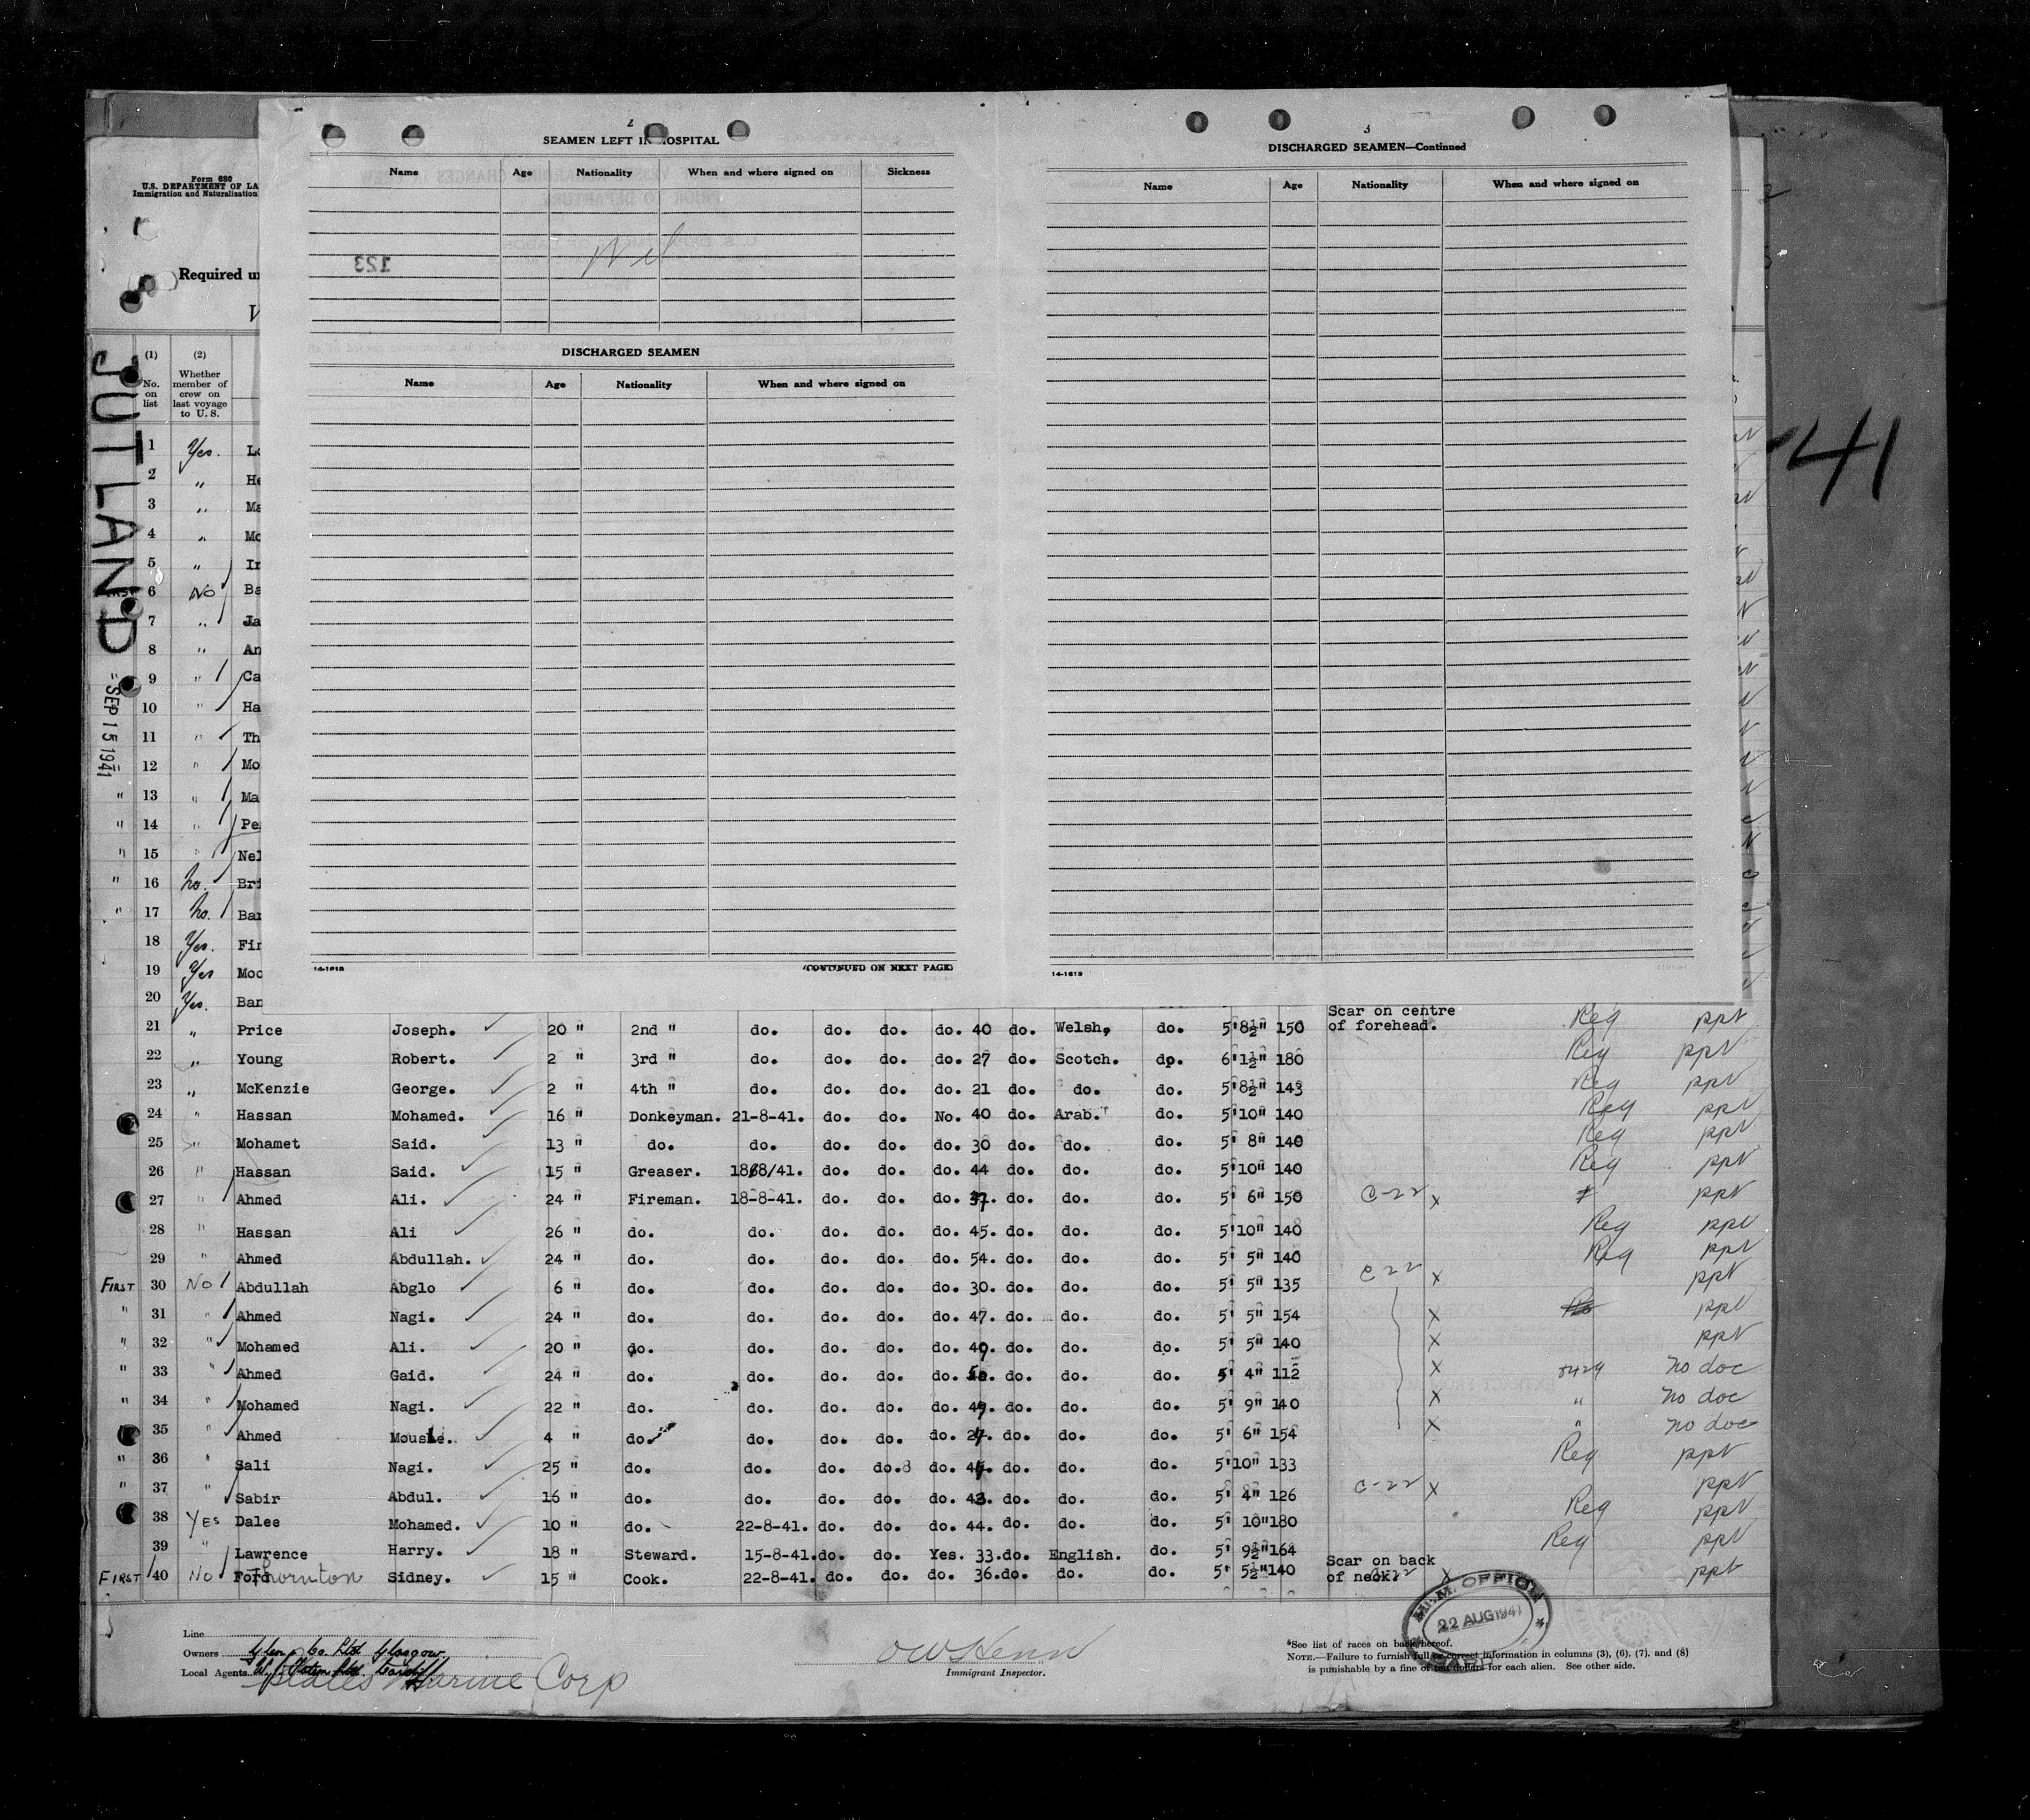 Form 680
U.S. DEPARTMENT OF LA
Immigration and Naturalization
Required un
V
JUTLAND
SEP 15 1941
41
2
SEAMEN LEFT IN HOSPITAL
Name Age Nationality When and where signed on Sickness
Nil
123
DISCHARGED SEAMEN
Name Age Nationality When and where signed on
14-1613 (CONTINUED ON NEXT PAGE)
3
DISCHARGED SEAMEN—Continued
Name Age Nationality When and where signed on
14-1613
(1) (2)
No. on list Whether member of crew on last voyage to U. S.
1 Yes. Lo
2 " He
3 " Ma
4 " Mo
5 " In
6 No Ba
7 " Ja
8 " An
9 " Ca
10 " Ha
11 " Th
12 " Mo
" 13 " Ma
" 14 " Pe
" 15 " Nel
" 16 No. Bri
" 17 No. Bar
18 Yes. Fin
19 Yes Moo
20 Yes. Ban
21 " Price Joseph. 20 " 2nd " do. do. do. do. 40 do. Welsh, do. 5'8½" 150 Scar on centre of forehead. Reg ppt
22 " Young Robert. 2 " 3rd " do. do. do. do. 27 do. Scotch. do. 6'1½" 180 Reg ppt
23 " McKenzie George. 2 " 4th " do. do. do. do. 21 do. do. do. 5'8½" 143 Reg ppt
24 " Hassan Mohamed. 16 " Donkeyman. 21-8-41. do. do. No. 40 do. Arab. do. 5'10" 140 Reg ppt
25 " Mohamet Said. 13 " do. do. do. do. do. 30 do. do. do. 5' 8" 140 Reg ppt
26 " Hassan Said. 15 " Greaser. 18/8/41. do. do. do. 44 do. do. do. 5'10" 140 Reg ppt
27 " Ahmed Ali. 24 " Fireman. 18-8-41. do. do. do. 37. do. do. do. 5' 6" 150 C-22 x ppt
28 " Hassan Ali 26 " do. do. do. do. do. 45. do. do. do. 5'10" 140 Reg ppt
29 " Ahmed Abdullah. 24 " do. do. do. do. do. 54. do. do. do. 5' 5" 140 Reg ppt
FIRST 30 No Abdullah Abglo 6 " do. do. do. do. do. 30. do. do. do. 5' 5" 135 C 22 x ppt
" 31 " Ahmed Nagi. 24 " do. do. do. do. do. 47. do. do. do. 5' 5" 154 x ppt
" 32 " Mohamed Ali. 20 " do. do. do. do. do. 49. do. do. do. 5' 5" 140 x ppt
" 33 " Ahmed Gaid. 24 " do. do. do. do. do. do. do. do. 5' 4" 112 x no doc
" 34 " Mohamed Nagi. 22 " do. do. do. do. do. 49. do. do. do. 5' 9" 140 x " no doc
35 " Ahmed Mousle. 4 " do. do. do. do. do. 27. do. do. do. 5' 6" 154 x " no doc
" 36 " Sali Nagi. 25 " do. do. do. do. do. do. do. do. 5'10" 133 Reg ppt
" 37 " Sabir Abdul. 16 " do. do. do. do. do. 43. do. do. do. 5' 4" 126 C-22 x ppt
38 YES Dalee Mohamed. 10 " do. 22-8-41. do. do. do. 44. do. do. do. 5' 10" 180 Reg ppt
39 " Lawrence Harry. 18 " Steward. 15-8-41. do. do. Yes. 33. do. English. do. 5' 9½" 164 Reg ppt
FIRST 40 No Ford Thornton Sidney. 15 " Cook. 22-8-41. do. do. do. 36. do. do. do. 5' 5½" 140 Scar on back of neck. x ppt
Line
Owners Glen & Co. Ltd Glasgow.
Local Agents W. J. Tatem Ltd. Cardiff
States Marine Corp
Immigrant Inspector.
22 AUG 1941
*See list of races on back hereof.
NOTE.—Failure to furnish full or correct information in columns (3), (6), (7), and (8)
is punishable by a fine of ten dollars for each alien. See other side.